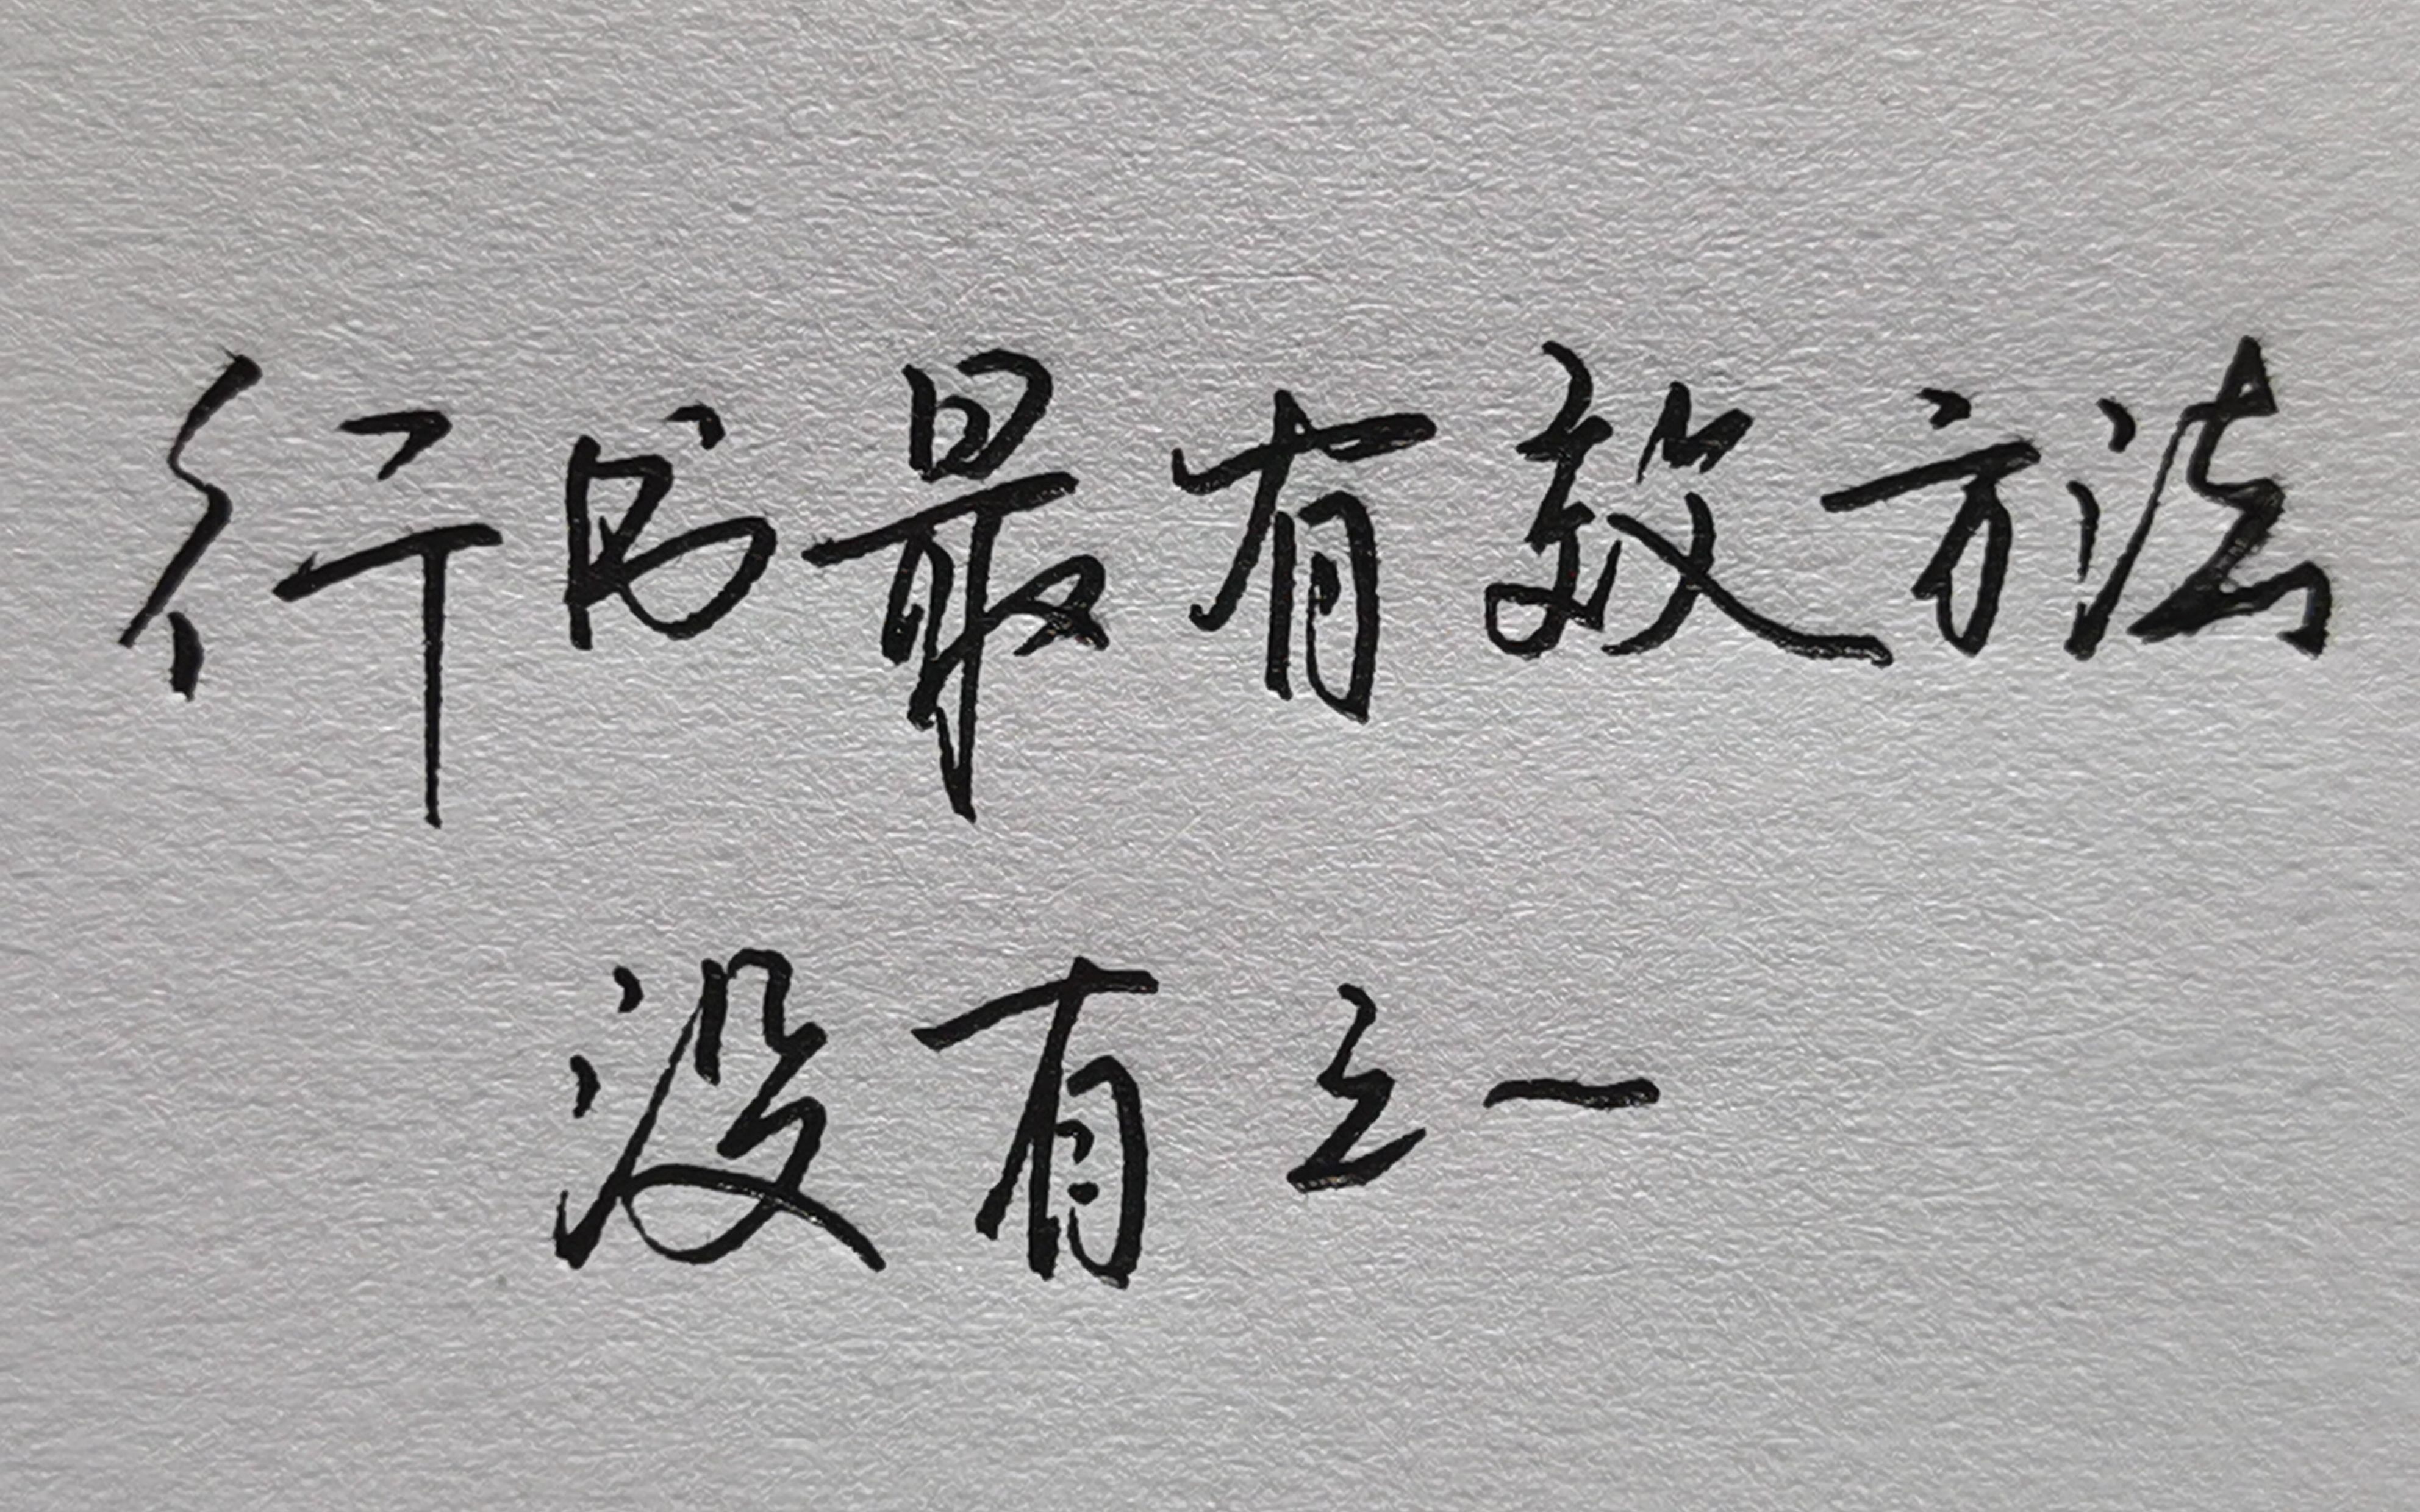 行书最有效方法
没有之一